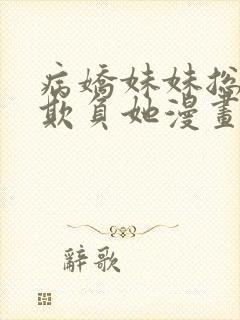 病嬌妹妹總
欺負她漫畫
辭歌